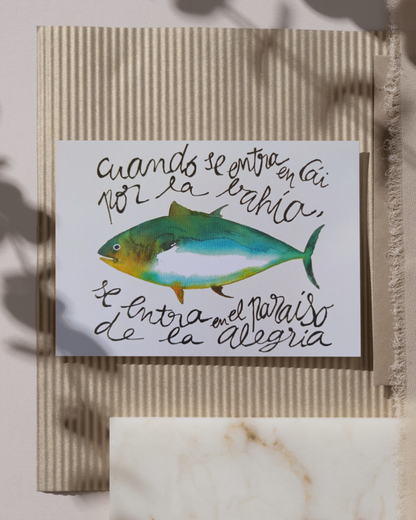 cuando se entra en Cai
por la bahía,
se entra en el paraiso
de la alegria